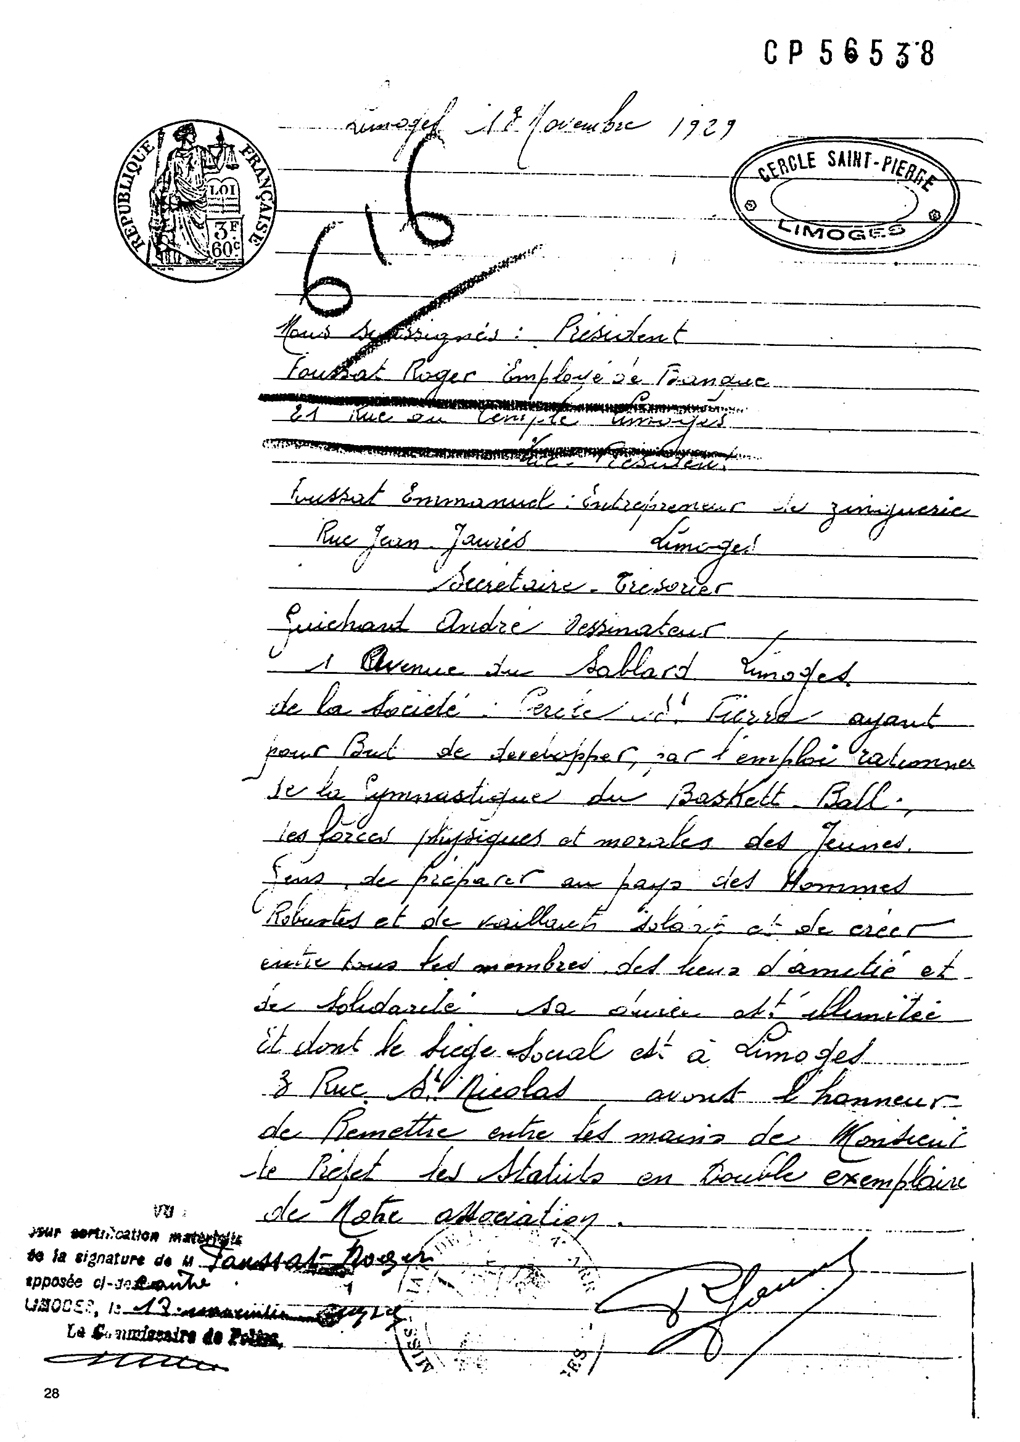 CP56538
Limoges 18 Novembre 1929
RÉPUBLIQUE FRANÇAISE
LOI
3F
60c
CERCLE SAINT-PIERRE
LIMOGES
616
Nous soussignés : Président
Foussat Roger Employé de Banque
21 Rue du Temple Limoges
Vice-Président
Foussat Emmanuel : Entrepreneur de zinguerie
Rue Jean Jaurès Limoges
Secrétaire - Trésorier
Guichard André Dessinateur
1 Avenue du Sablard Limoges
de la Société : Cercle St Pierre ayant
pour But de developper, par l'emploi rationnel
de la Gymnastique du Baskett-Ball,
les forces physiques et morales des Jeunes
Gens, de préparer au pays des Hommes
Robustes et de vaillants soldats et de créer
entre tous les membres des liens d'amitié et
de Solidarité sa durée est illimitée
Et dont le siège social est à Limoges
3 Rue St Nicolas avons l'honneur
de Remettre entre les mains de Monsieur
le Préfet les Statuts en Double exemplaire
de Notre association.
VU
pour certification matérielle
de la signature de M Foussat Roger
apposée ci-de contre
LIMOGES, le
Le Commissaire de Police,
28